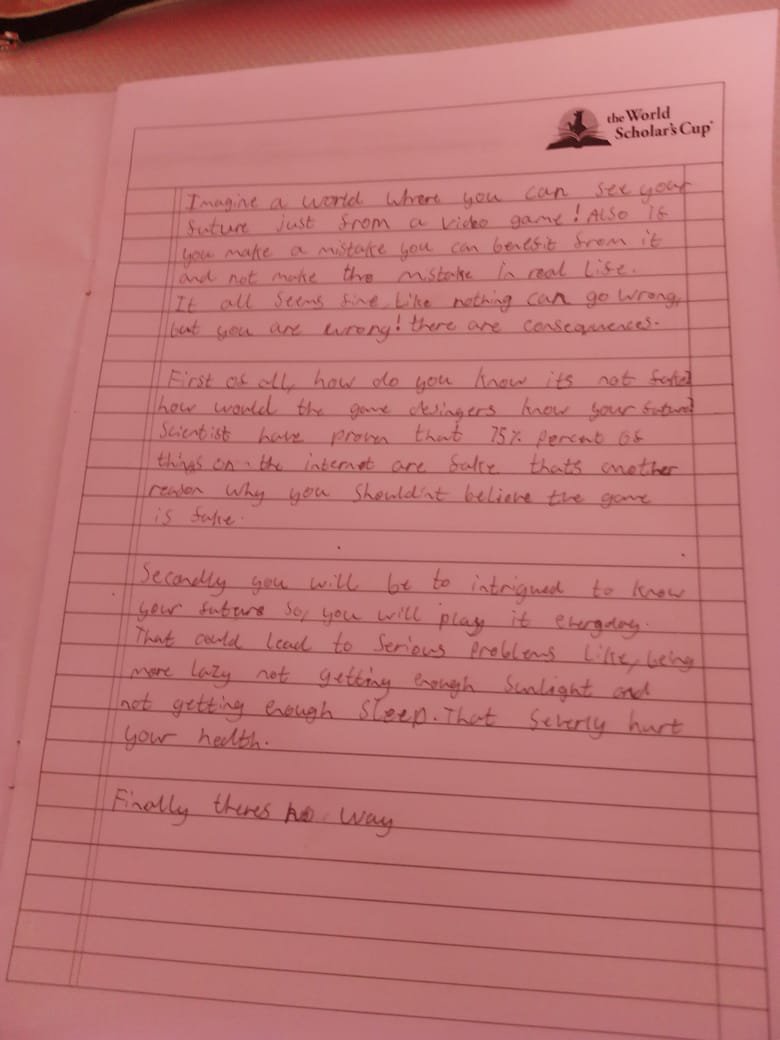 the World
Scholar's Cup
Imagine a world where you can see your
future just from a video game! Also if
you make a mistake you can benefit from it
and not make the mistake in real life.
It all seems fine like nothing can go wrong,
but you are wrong! there are consequences.
First of all, how do you know its not fake?
how would the game desingers know your future?
Scientist have proven that 75% percent of
things on the internet are fake thats another
reason why you shouldn't believe the game
is fake.
Secondly you will be to intrigued to know
your future so, you will play it everyday.
That could lead to serious problems like, being
more lazy not getting enough sunlight and
not getting enough sleep. That severly hurt
your health.
Finally theres no way